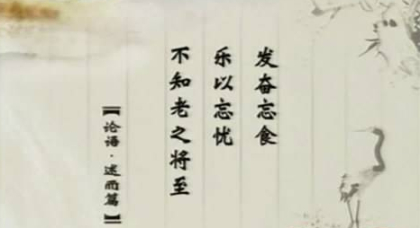 发奋忘食
乐以忘忧
不知老之将至
【论语·述而篇】